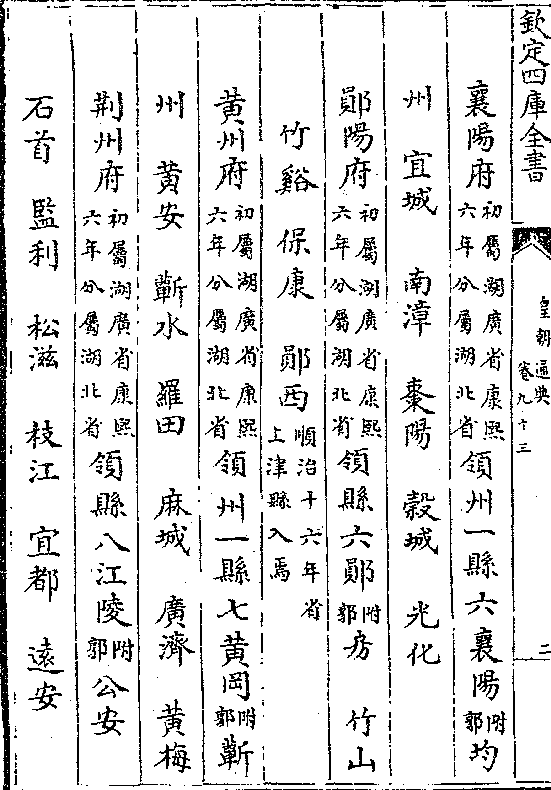 欽定四庫全書
皇朝通典
卷九十三
二
襄陽府初屬湖廣省康熙六年分屬湖北省領州一縣六襄陽附郭均
州 宜城 南漳 棗陽 穀城 光化
鄖陽府初屬湖廣省康熙六年分屬湖北省領縣六鄖附郭房 竹山
竹谿 保康 鄖西順治十六年省上津縣入焉
黃州府初屬湖廣省康熙六年分屬湖北省領州一縣七黃岡附郭蘄
州 黃安 蘄水 羅田 麻城 廣濟 黃梅
荆州府初屬湖廣省康熙六年分屬湖北省領縣八江陵附郭公安
石首 監利 松滋 枝江 宜都 遠安